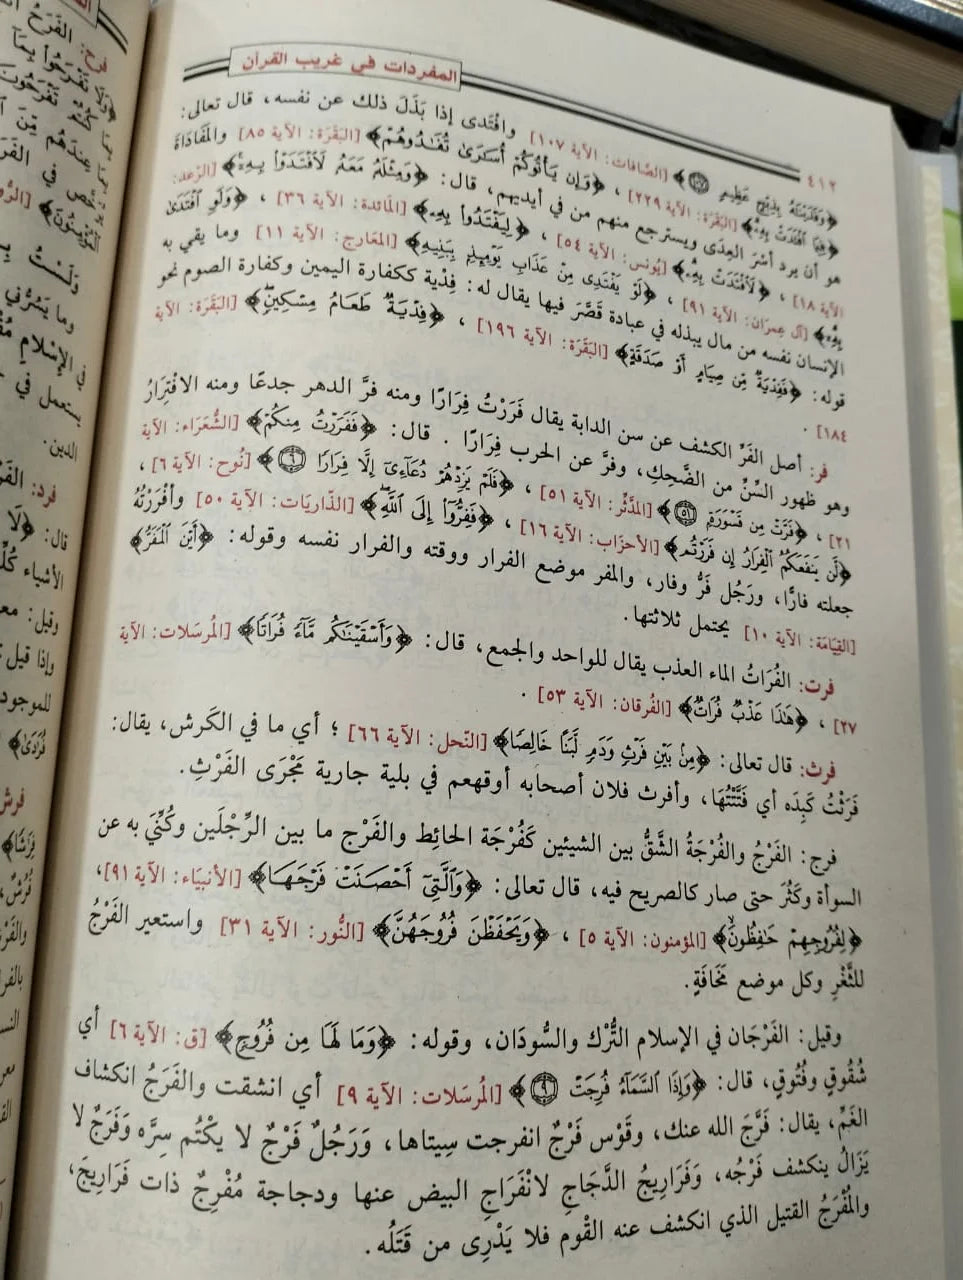 المفردات في غريب القرآن
٤١٢
﴿وَفَدَيْنَٰهُ بِذِبْحٍ عَظِيمٍ ١٠٧﴾ [الصَّافات: الآية ١٠٧] وافْتَدى إذا بَذَلَ ذلك عن نفسه، قال تعالى:
﴿فِيمَا ٱفْتَدَتْ بِهِۦ﴾ [البَقَرَة: الآية ٢٢٩] ، ﴿وَإِن يَأْتُوكُمْ أُسَٰرَىٰ تُفَٰدُوهُمْ﴾ [البَقَرَة: الآية ٨٥] والمُفَاداةُ
هو أن يرد أسْرَ العِدَى ويسترجع منهم من في أيديهم، قال: ﴿وَمِثْلَهُۥ مَعَهُۥ لَٱفْتَدَوْا۟ بِهِۦٓ﴾ [الرّعد:
الآية ١٨] ، ﴿لَٱفْتَدَتْ بِهِۦ﴾ [يُونس: الآية ٥٤] ، ﴿لِيَفْتَدُوا۟ بِهِۦ﴾ [المَائدة: الآية ٣٦] ، ﴿وَلَوِ ٱفْتَدَىٰ
بِهِۦٓ﴾ [آل عِمرَان: الآية ٩١] ، ﴿لَوْ يَفْتَدِى مِنْ عَذَابِ يَوْمِئِذٍۭ بِبَنِيهِ﴾ [المعَارج: الآية ١١] وما يقي به
الإنسان نفسه من مال يبذله في عبادة قَصَّرَ فيها يقال له: فِدْية ككفارة اليمين وكفارة الصوم نحو
قوله: ﴿فَفِدْيَةٌ مِّن صِيَامٍ أَوْ صَدَقَةٍ﴾ [البَقَرَة: الآية ١٩٦] ، ﴿فِدْيَةٌ طَعَامُ مِسْكِينٍ﴾ [البَقَرَة: الآية
١٨٤] .
فر: أصل الفَرِّ الكشف عن سن الدابة يقال فَرَرْتُ فِرَارًا ومنه فرَّ الدهر جدعًا ومنه الافْتِرَارُ
وهو ظهور السِّنِّ من الضَّحِكِ، وفرَّ عن الحرب فِرَارًا . قال: ﴿فَفَرَرْتُ مِنكُمْ﴾ [الشُّعَرَاء: الآية
٢١] ، ﴿فَرَّتْ مِن قَسْوَرَةٍۭ ٥١﴾ [المدَّثِّر: الآية ٥١] ، ﴿فَلَمْ يَزِدْهُمْ دُعَآءِىٓ إِلَّا فِرَارًا ٦﴾ [نُوح: الآية ٦] ،
﴿لَّن يَنفَعَكُمُ ٱلْفِرَارُ إِن فَرَرْتُم﴾ [الأحزَاب: الآية ١٦] ، ﴿فَفِرُّوٓا۟ إِلَى ٱللَّهِ﴾ [الذّاريَات: الآية ٥٠] وأفْرَرْتُهُ
جعلته فارًّا، ورَجُل فَرٌّ وفار، والمفر موضع الفرار ووقته والفرار نفسه وقوله: ﴿أَيْنَ ٱلْمَفَرُّ﴾
[القِيَامَة: الآية ١٠] يحتمل ثلاثتها.
فرت: الفُرَاتُ الماء العذب يقال للواحد والجمع، قال: ﴿وَأَسْقَيْنَٰكُم مَّآءً فُرَاتًا﴾ [المُرسَلات: الآية
٢٧] ، ﴿هَٰذَا عَذْبٌ فُرَاتٌ﴾ [الفُرقان: الآية ٥٣] .
فرث: قال تعالى: ﴿مِنۢ بَيْنِ فَرْثٍ وَدَمٍ لَّبَنًا خَالِصًا﴾ [النّحل: الآية ٦٦] ؛ أي ما في الكَرش، يقال:
فَرَثْتُ كَبِدَه أي فَتَّتُّهَا، وأفرث فلان أصحابه أوقعهم في بلية جارية مَجْرَى الفَرْثِ.
فرج: الفَرْجُ والفُرْجَةُ الشَّقُّ بين الشيئين كَفُرْجَة الحائِط والفَرْج ما بين الرِّجْلَين وكُنِّيَ به عن
السوأة وكَثُرَ حتى صار كالصريح فيه، قال تعالى: ﴿وَٱلَّتِىٓ أَحْصَنَتْ فَرْجَهَا﴾ [الأنبيَاء: الآية ٩١]،
﴿لِفُرُوجِهِمْ حَٰفِظُونَ﴾ [المؤمنون: الآية ٥] ، ﴿وَيَحْفَظْنَ فُرُوجَهُنَّ﴾ [النُّور: الآية ٣١] واستعير الفَرْجُ
للثَّغْرِ وكل موضع مَخَافَةٍ.
وقيل: الفَرْجَان في الإسلام التُّرْك والسُّودَان، وقوله: ﴿وَمَا لَهَا مِن فُرُوجٍ﴾ [ق: الآية ٦] أي
شُقُوقٍ وفُتُوقٍ، قال: ﴿وَإِذَا ٱلسَّمَآءُ فُرِجَتْ ٩﴾ [المُرسَلات: الآية ٩] أي انشقت والفَرَجُ انكشاف
الغَمِّ، يقال: فَرَّجَ الله عنك، وقَوْس فَرْجٌ انفرجت سِيتاها، ورَجُلٌ فَرْجٌ لا يكْتُم سِرَّه وَفَرَجٌ لا
يَزَالُ ينكشف فَرْجُه، وَفَرَارِيجُ الدَّجَاجِ لانْفَرَاجِ البيض عنها ودجاجة مُفْرِجٌ ذات فَرَارِيجَ،
والمُفْرَجُ القتيل الذي انكشف عنه القْوم فلا يَدْرِى من قَتَلُه.